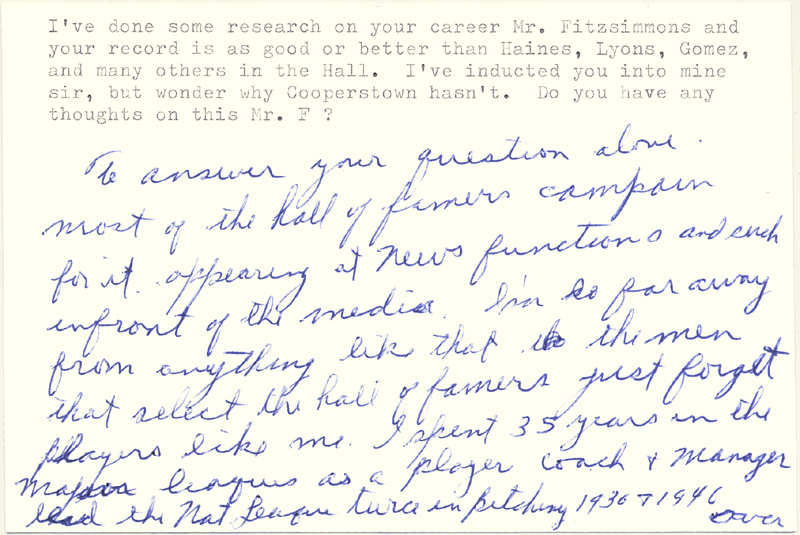 I've done some research on your career Mr. Fitzsimmons and
your record is as good or better than Haines, Lyons, Gomez,
and many others in the Hall.  I've inducted you into mine
sir, but wonder why Cooperstown hasn't.  Do you have any
thoughts on this Mr. F ?
To answer your question alone.
most of the hall of famers campain
for it. appearing at news functions and such
infront of the media. I'm so far away
from anything like that the men
that select the hall of famers just forget
players like me. I spent 35 years in the
Major leagues as a player coach & Manager
lead the Nat League twice in pitching 1930 & 1940
over